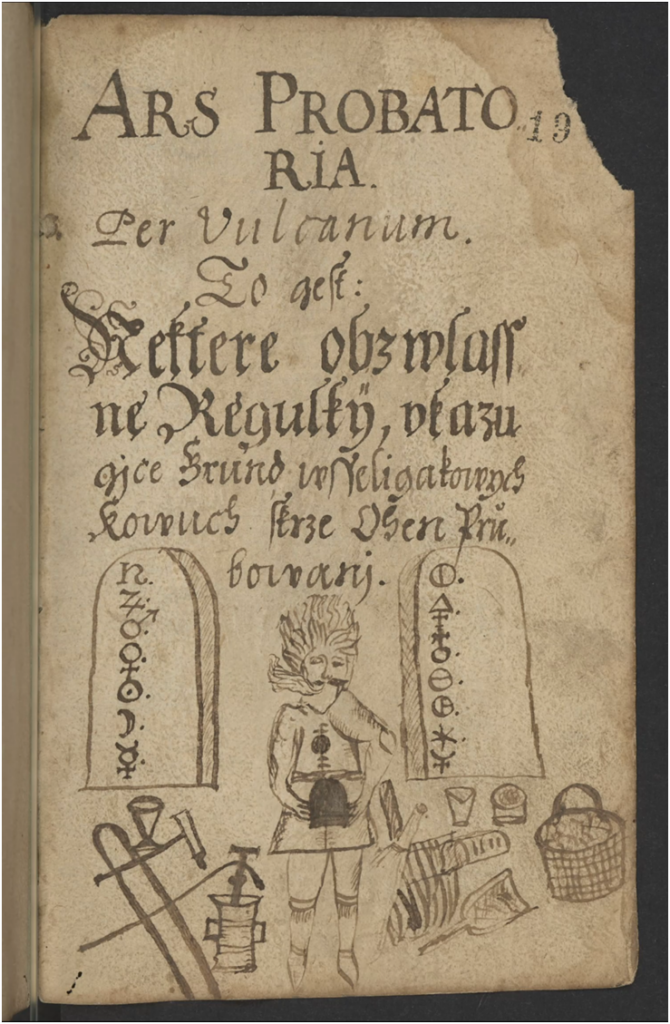 ARS PROBATO
19
RIA.
Per Vulcanum.
To gest:
Nektere obzwlass
ne Regulky, vkazu
gjce Grund wsseligakowych
Kowuch skrze Ohen Prů„
bowanj.
♃
♂
♀
☉
☽
☿